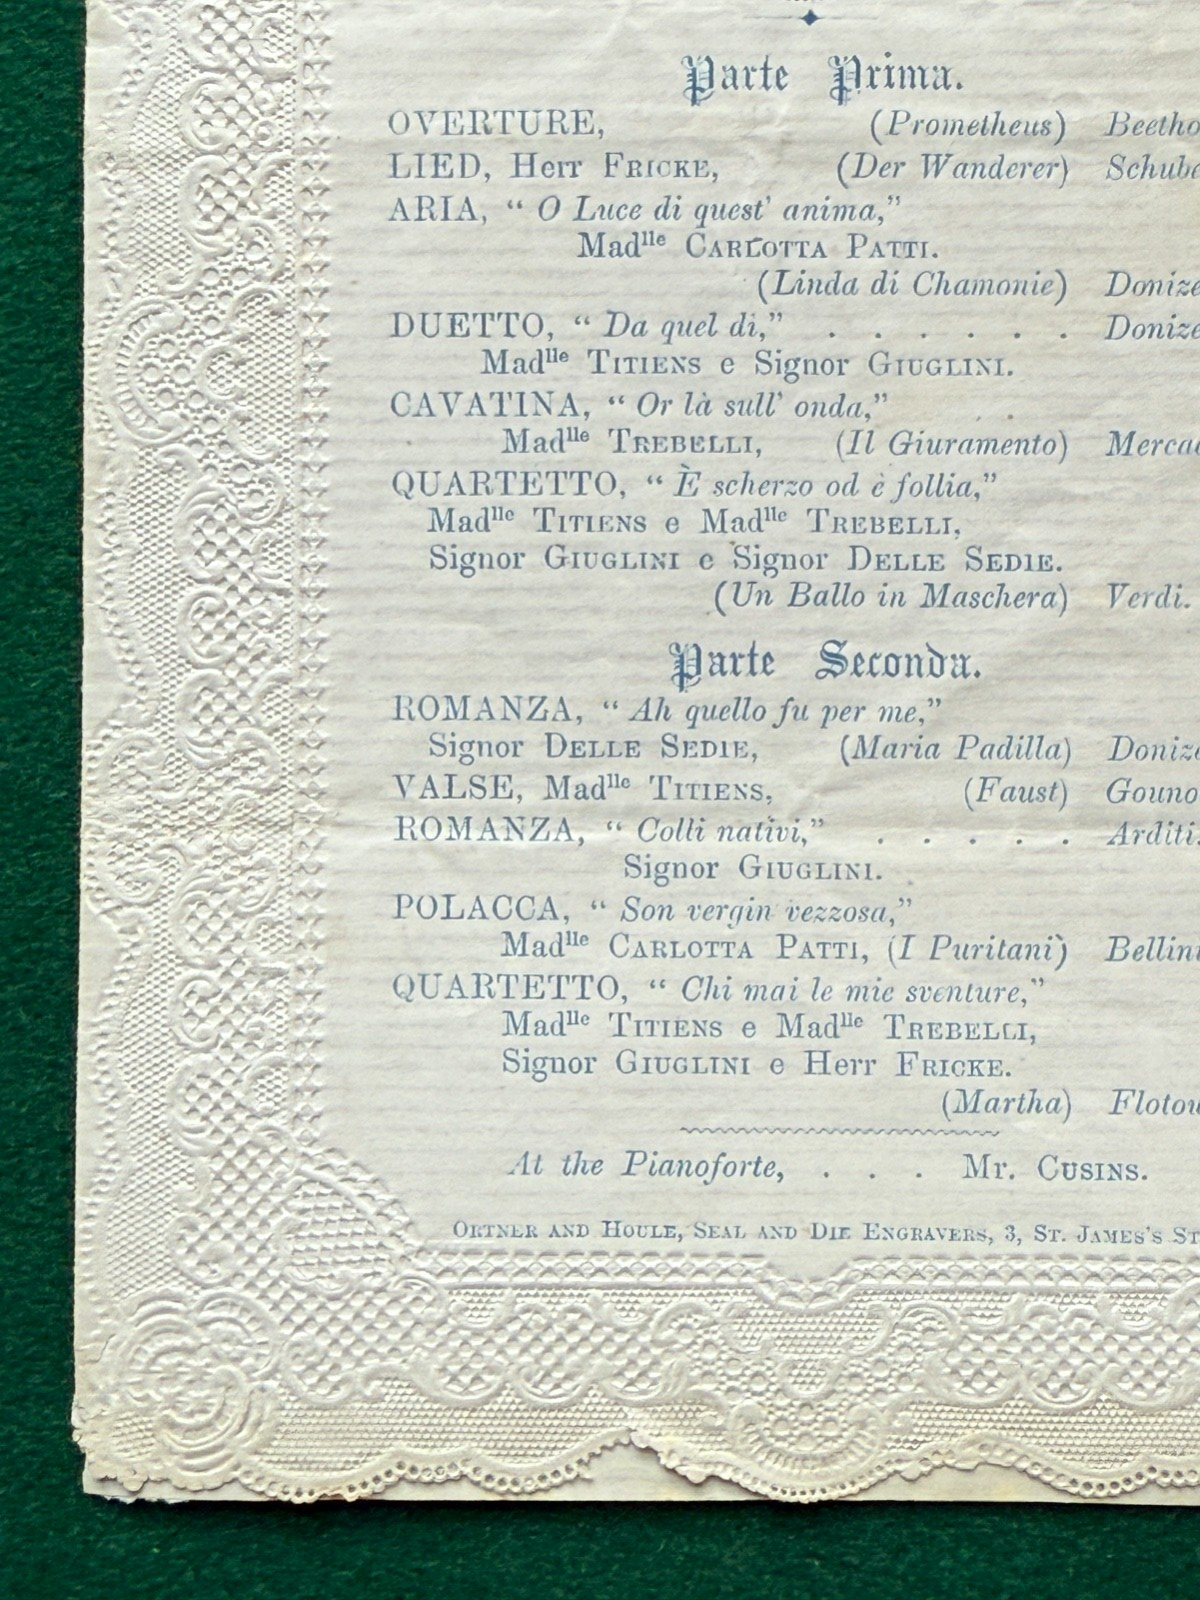 Parte Prima.
OVERTURE, (Prometheus) Beetho
LIED, Herr FRICKE, (Der Wanderer) Schube
ARIA, “ O Luce di quest' anima,”
Madlle CARLOTTA PATTI.
(Linda di Chamonie) Donize
DUETTO, “ Da quel di,” . . . . . . Donize
Madlle TITIENS e Signor GIUGLINI.
CAVATINA, “ Or là sull' onda,”
Madlle TREBELLI, (Il Giuramento) Mercad
QUARTETTO, “ È scherzo od è follia,”
Madlle TITIENS e Madlle TREBELLI,
Signor GIUGLINI e Signor DELLE SEDIE.
(Un Ballo in Maschera) Verdi.
Parte Seconda.
ROMANZA, “ Ah quello fu per me,”
Signor DELLE SEDIE, (Maria Padilla) Donize
VALSE, Madlle TITIENS, (Faust) Gouno
ROMANZA, “ Colli nativi,” . . . . . Arditi.
Signor GIUGLINI.
POLACCA, “ Son vergin vezzosa,”
Madlle CARLOTTA PATTI, (I Puritani) Bellini
QUARTETTO, “ Chi mai le mie sventure,”
Madlle TITIENS e Madlle TREBELLI,
Signor GIUGLINI e Herr FRICKE.
(Martha) Flotow
At the Pianoforte, . . . Mr. CUSINS.
ORTNER AND HOULE, SEAL AND DIE ENGRAVERS, 3, ST. JAMES'S ST